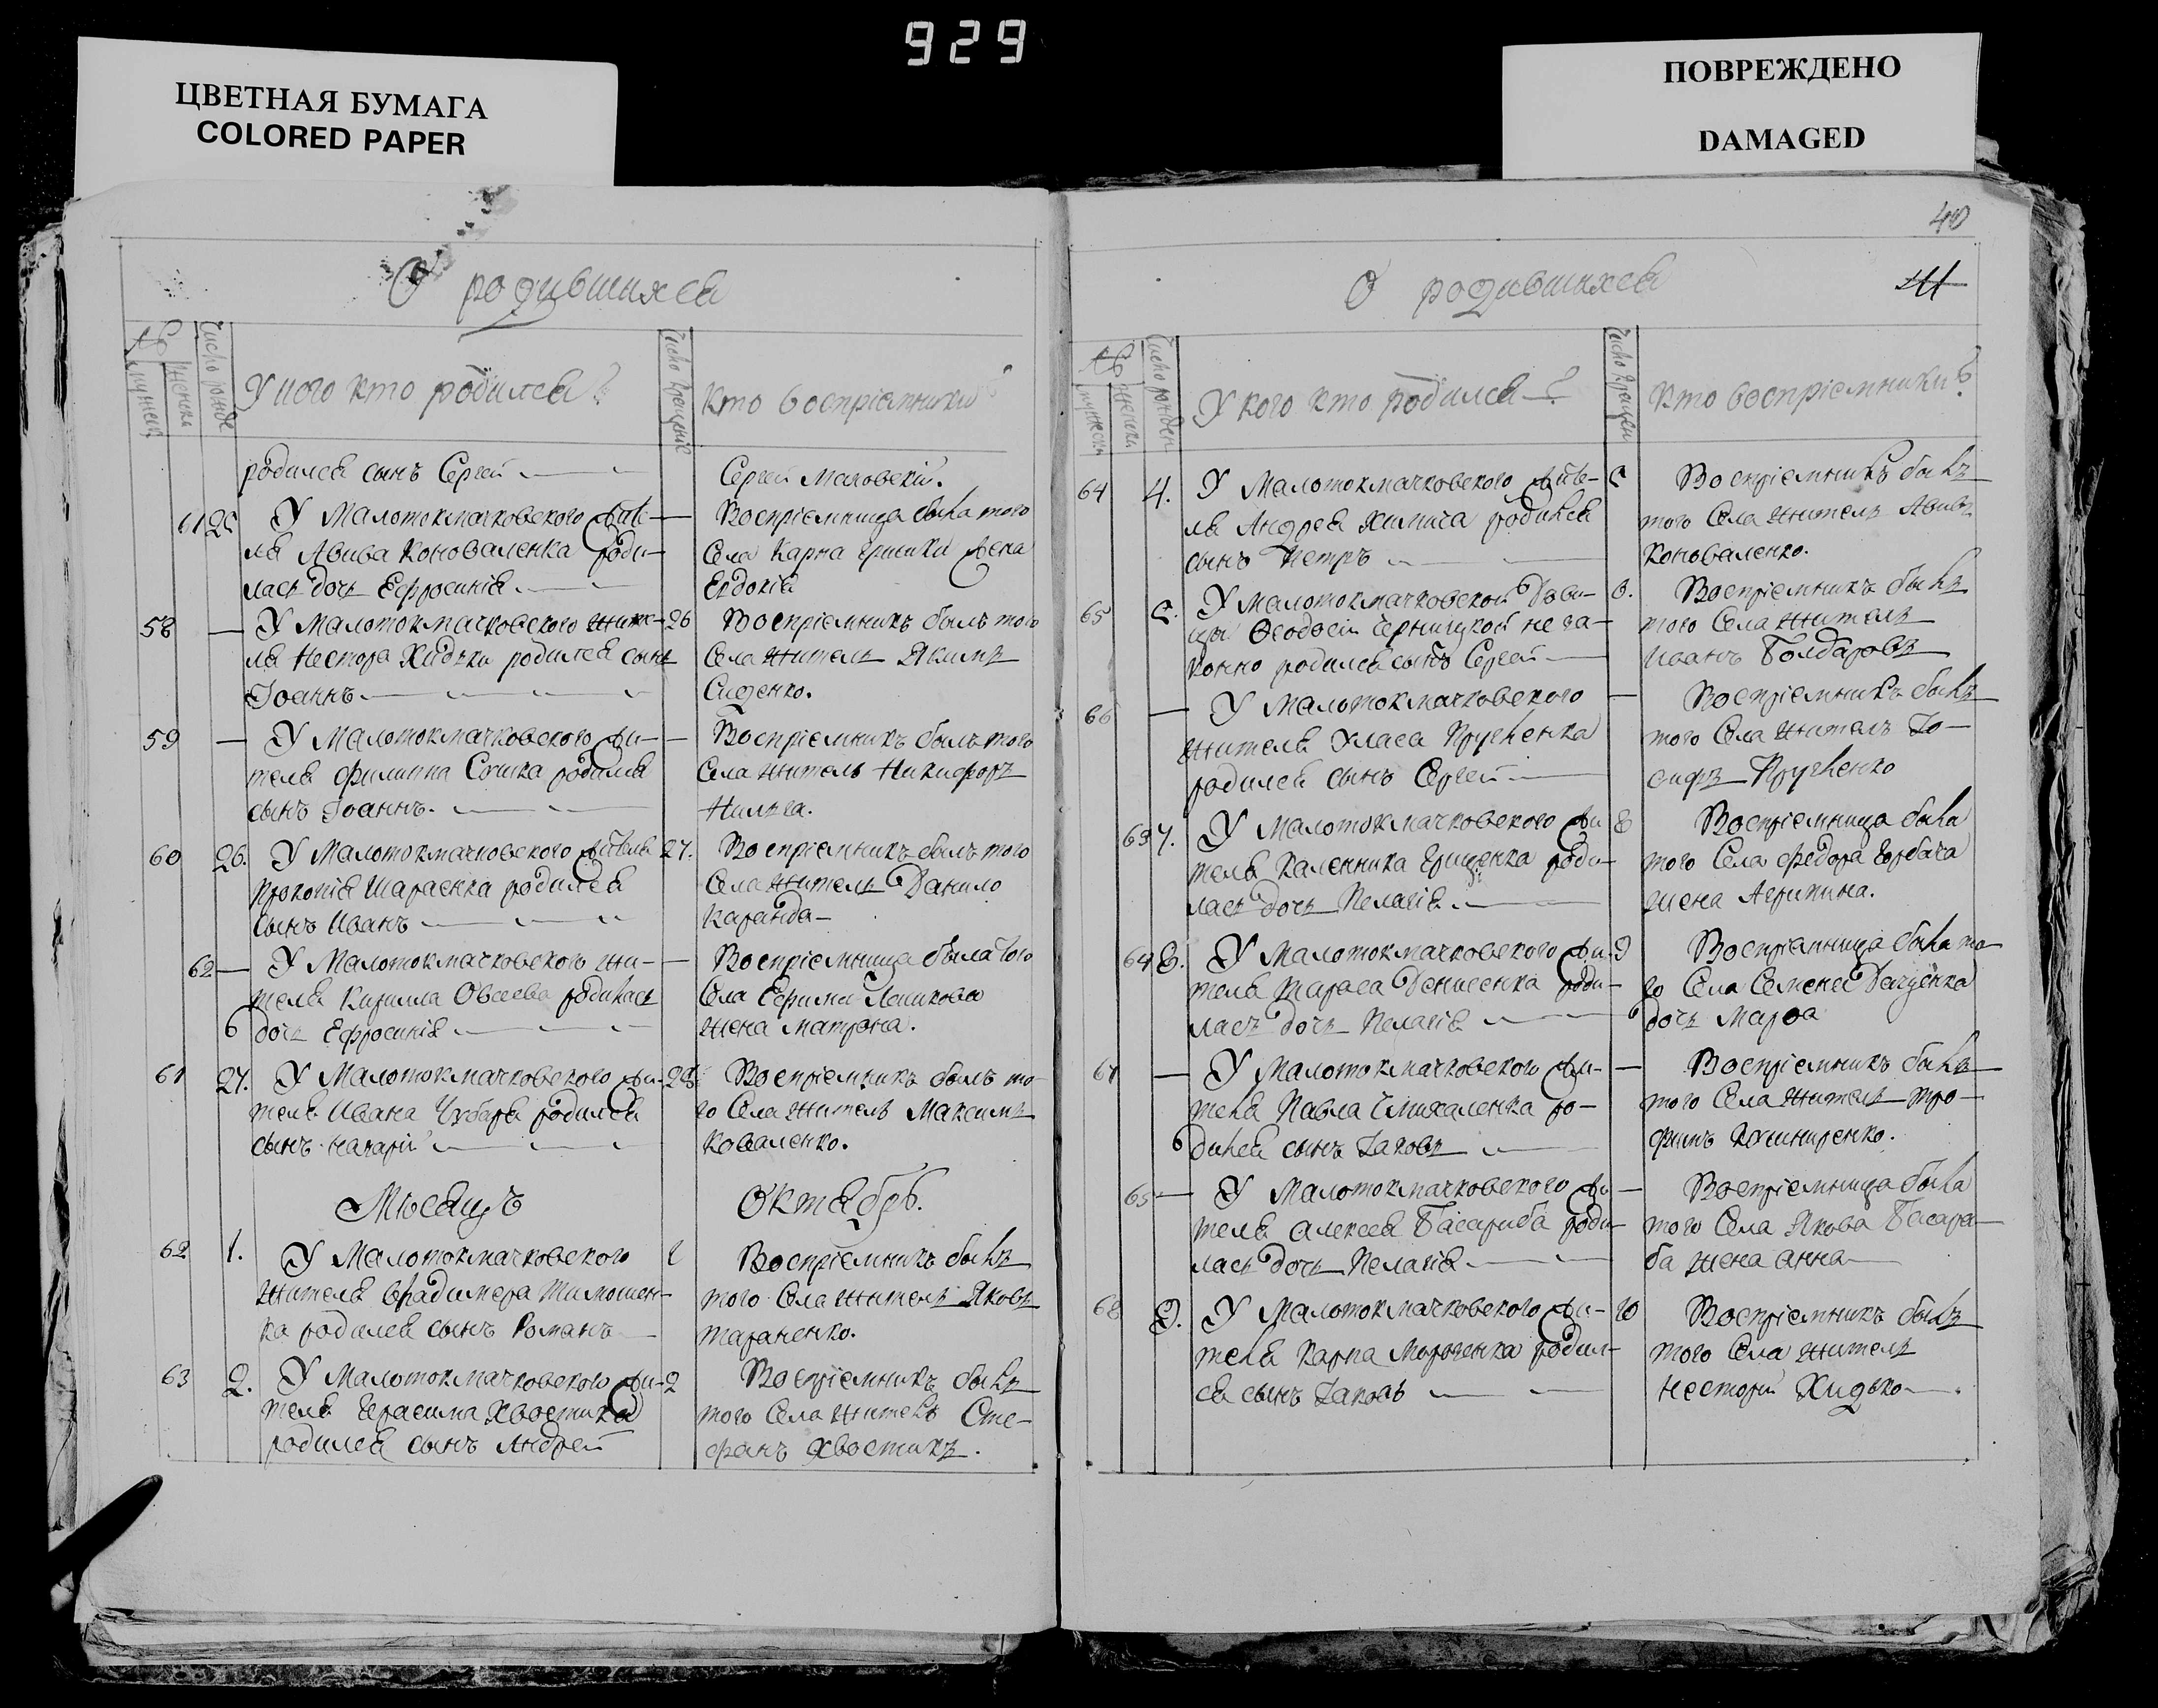 929
ЦВЕТНАЯ БУМАГА
COLORED PAPER
ПОВРЕЖДЕНО
DAMAGED
О родившихся
№
мужеск
женски
Число рожде
У кого кто родился?
Число крещенiе
Кто воспрiемники?
родился сынъ Сергей
Сергей
61 25 У Малотокмачковского жите-
ля Авива Коноваленка роди-
лась дочь Ефросинiя
Воспрiемница была того
Села Карпа жена
Евдокiя
58 — У Малотокмачковского жите- 26
ля Нестора Хидька родился сынъ
Iоаннъ
Воспрiемникъ былъ того
Села житель Якимъ
Сиденко.
59 — У Малотокмачковского жи- —
теля Филиппа родился
сынъ Iоаннъ.
Воспрiемникъ былъ того
Села житель Никифоръ
60 26. У Малотокмачковского жителя 27.
Прокопiя Шараенка родился
сынъ Иванъ
Воспрiемникъ былъ того
Села житель Данило
Каранда
62 — У Малотокмачковского жи- —
теля Кирилла Овсеева родилась
дочь Ефросинiя
Воспрiемница была того
Села Ефима
жена Матрона.
61 27. У Малотокмачковского жи- 28
теля Ивана Чубаря родился
сынъ Назарiй
Воспрiемникъ былъ то-
го Села житель Максимъ
Коваленко.
Мѣсяцъ Октябрь.
62 1. У Малотокмачковского
жителя Владимера Тимошен-
ка родился сынъ Романъ
Воспрiемникъ былъ
того Села житель Яковъ
Тараненко.
63 2. У Малотокмачковского жи- 2
теля Герасима Хвостика
родился сынъ Андрей
Воспрiемникъ былъ
того Села житель Сте-
фанъ Хвостикъ.
40
41
О родившихся
№
мужески
женски
Число рожден
У кого кто родился?
Число крещен
Кто воспрiемники?
64 4. У Малотокмачковского жите- 5
ля Андрея Химича родился
сынъ Петръ
Воспрiемникъ былъ
того Села житель Авивъ
Коноваленко.
65 5. У Малотокмачковской Дѣви- 6.
цы Ѳеодосiи Черницкой не за-
конно родился сынъ Сергей
Воспрiемникъ былъ
того Села житель
Иванъ Болдаровъ
66 — У Малотокмачковского —
жителя Власа Пругленка
родился сынъ Сергей
Воспрiемникъ былъ
того Села житель Iо-
сифъ Пругленко
63 7. У Малотокмачковского жи 8
теля Каленника Грищенка роди-
лась дочь Пелагiя
Воспрiемница была
того Села Федора Горбача
жена Агрипина.
64 8. У Малотокмачковского жи- 9
теля Тараса Денисенка роди-
лась дочь Пелагiя
Воспрiемница была то
го Села Семена
дочь Марѳа
67 — У Малотокмачковского жи- —
теля Павла Михаленка ро-
дился сынъ Iаковъ
Воспрiемникъ былъ
того Села житель Тро-
фимъ
65 — У Малотокмачковского жи —
теля Алексея Басараба роди-
лась дочь Пелагiя
Воспрiемница была
того Села Якова Басара-
ба жена Анна
68 9. У Малотокмачковского жи- 10
теля Карпа Мороченка родил-
ся сынъ Iаковъ
Воспрiемникъ былъ
того Села житель
Несторiй Хидько